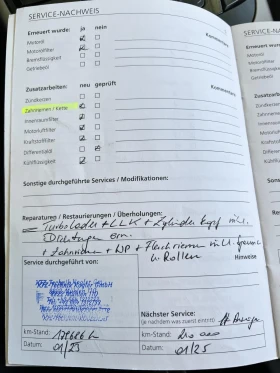 SERVICE-NACHWEIS
SERVICE-NA
Erneuert wurde: ja nein
Kommentare
Motoröl
Motorölfilter
Bremsflüssigkeit
Getriebeöl
Erneuert
Motoröl
Motorölfilter
Bremsflüssigkeit
Getriebeöl
Zusatzarbeiten: neu geprüft
Kommentare
Zündkerzen
Zahnriemen / Kette
Innenraumfilter
Motorluftfilter
Kraftstofffilter
Differentialöl
Kühlflüssigkeit
Sonstige durchgeführte Services / Modifikationen:
Reparaturen / Restaurierungen / Überholungen:
Turbolader + LLK + Zylinderkopf inkl.
Dichtungen ern.
+ Zahnriemen + WP + Flachriemen inkl.
u. Rollen
Hinweise
Service durchgeführt von:
Nächster Service:
(je nachdem was zuerst eintritt)
km-Stand:
km-Stand: 210 000
Datum: 01/25
Datum: 01/25